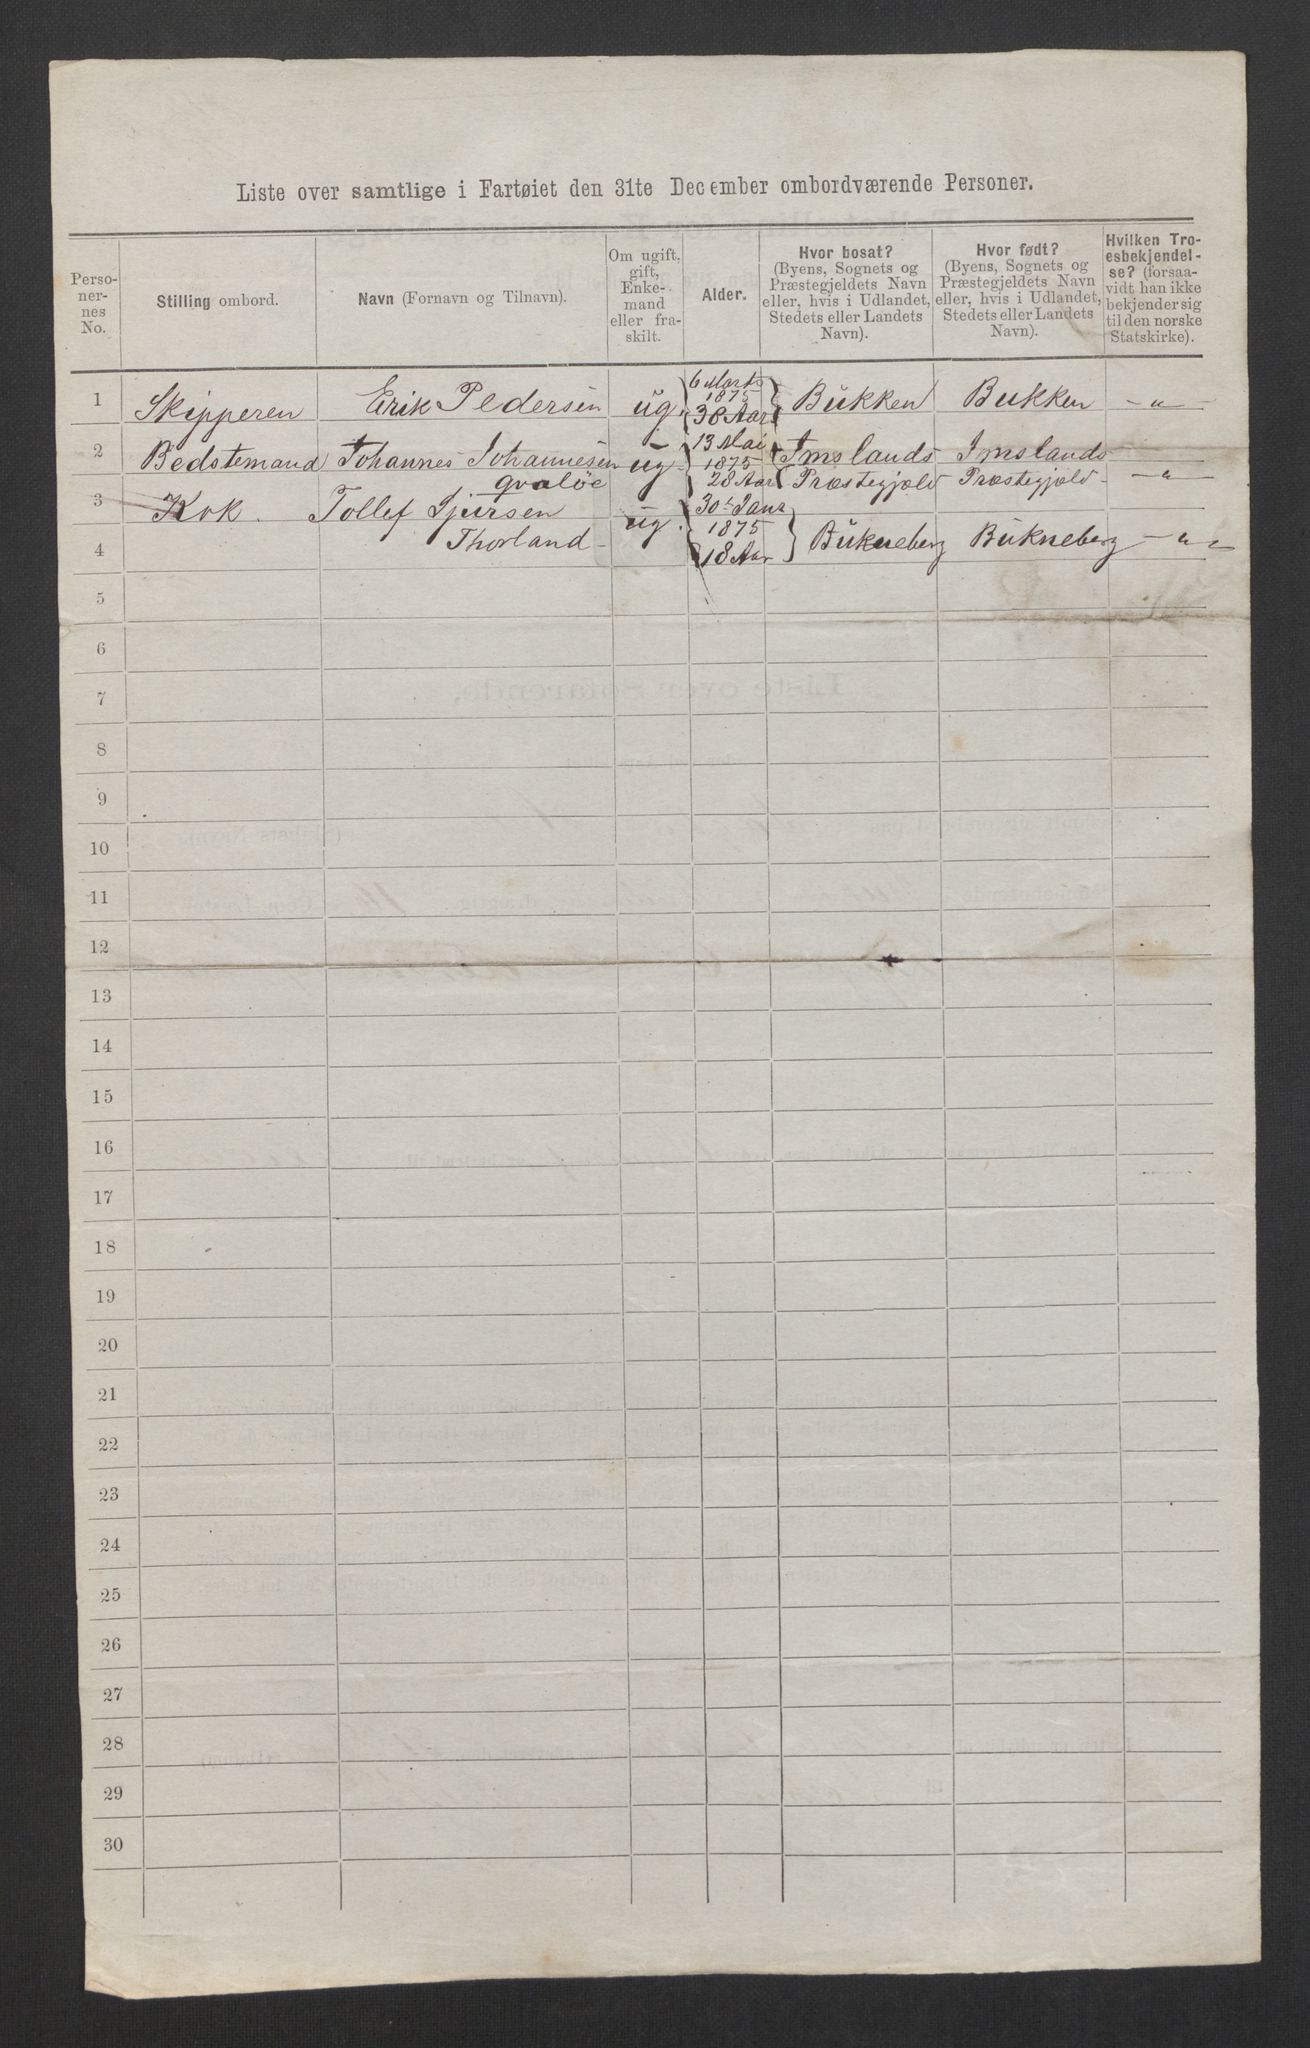 Liste over samtlige i Fartøiet den 31te December ombordværende Personer.
Perso-
ner-
nes
No.
Stilling ombord.
Navn (Fornavn og Tilnavn).
Om ugift,
gift,
Enke-
mand
eller fra-
skilt.
Alder.
Hvor bosat?
(Byens, Sognets og
Præstegjeldets Navn
eller, hvis i Udlandet,
Stedets eller Landets
Navn).
Hvor født?
(Byens, Sognets og
Præstegjeldets Navn
eller, hvis i Udlandet,
Stedets eller Landets
Navn).
Hvilken Tro-
esbekjendel-
se? (forsaa-
vidt han ikke
bekjender sig
til den norske
Statskirke).
1 Skipperen Erik Pedersen ug. 6 Marts 1875 38 Aar Bukken Bukken - " -
2 Bedstemand Johannes Johannesen ug 13 Mai 1875 28 Aar Imslands Imslands
qvaløe Præstegjæld Præstegjæld - " -
3 Kok. Tollef Sjursen ug. 30te Janr 1875 18 Aar
4 Thorland Bukneberg Bukneberg - " -
5
6
7
8
9
10
11
12
13
14
15
16
17
18
19
20
21
22
23
24
25
26
27
28
29
30